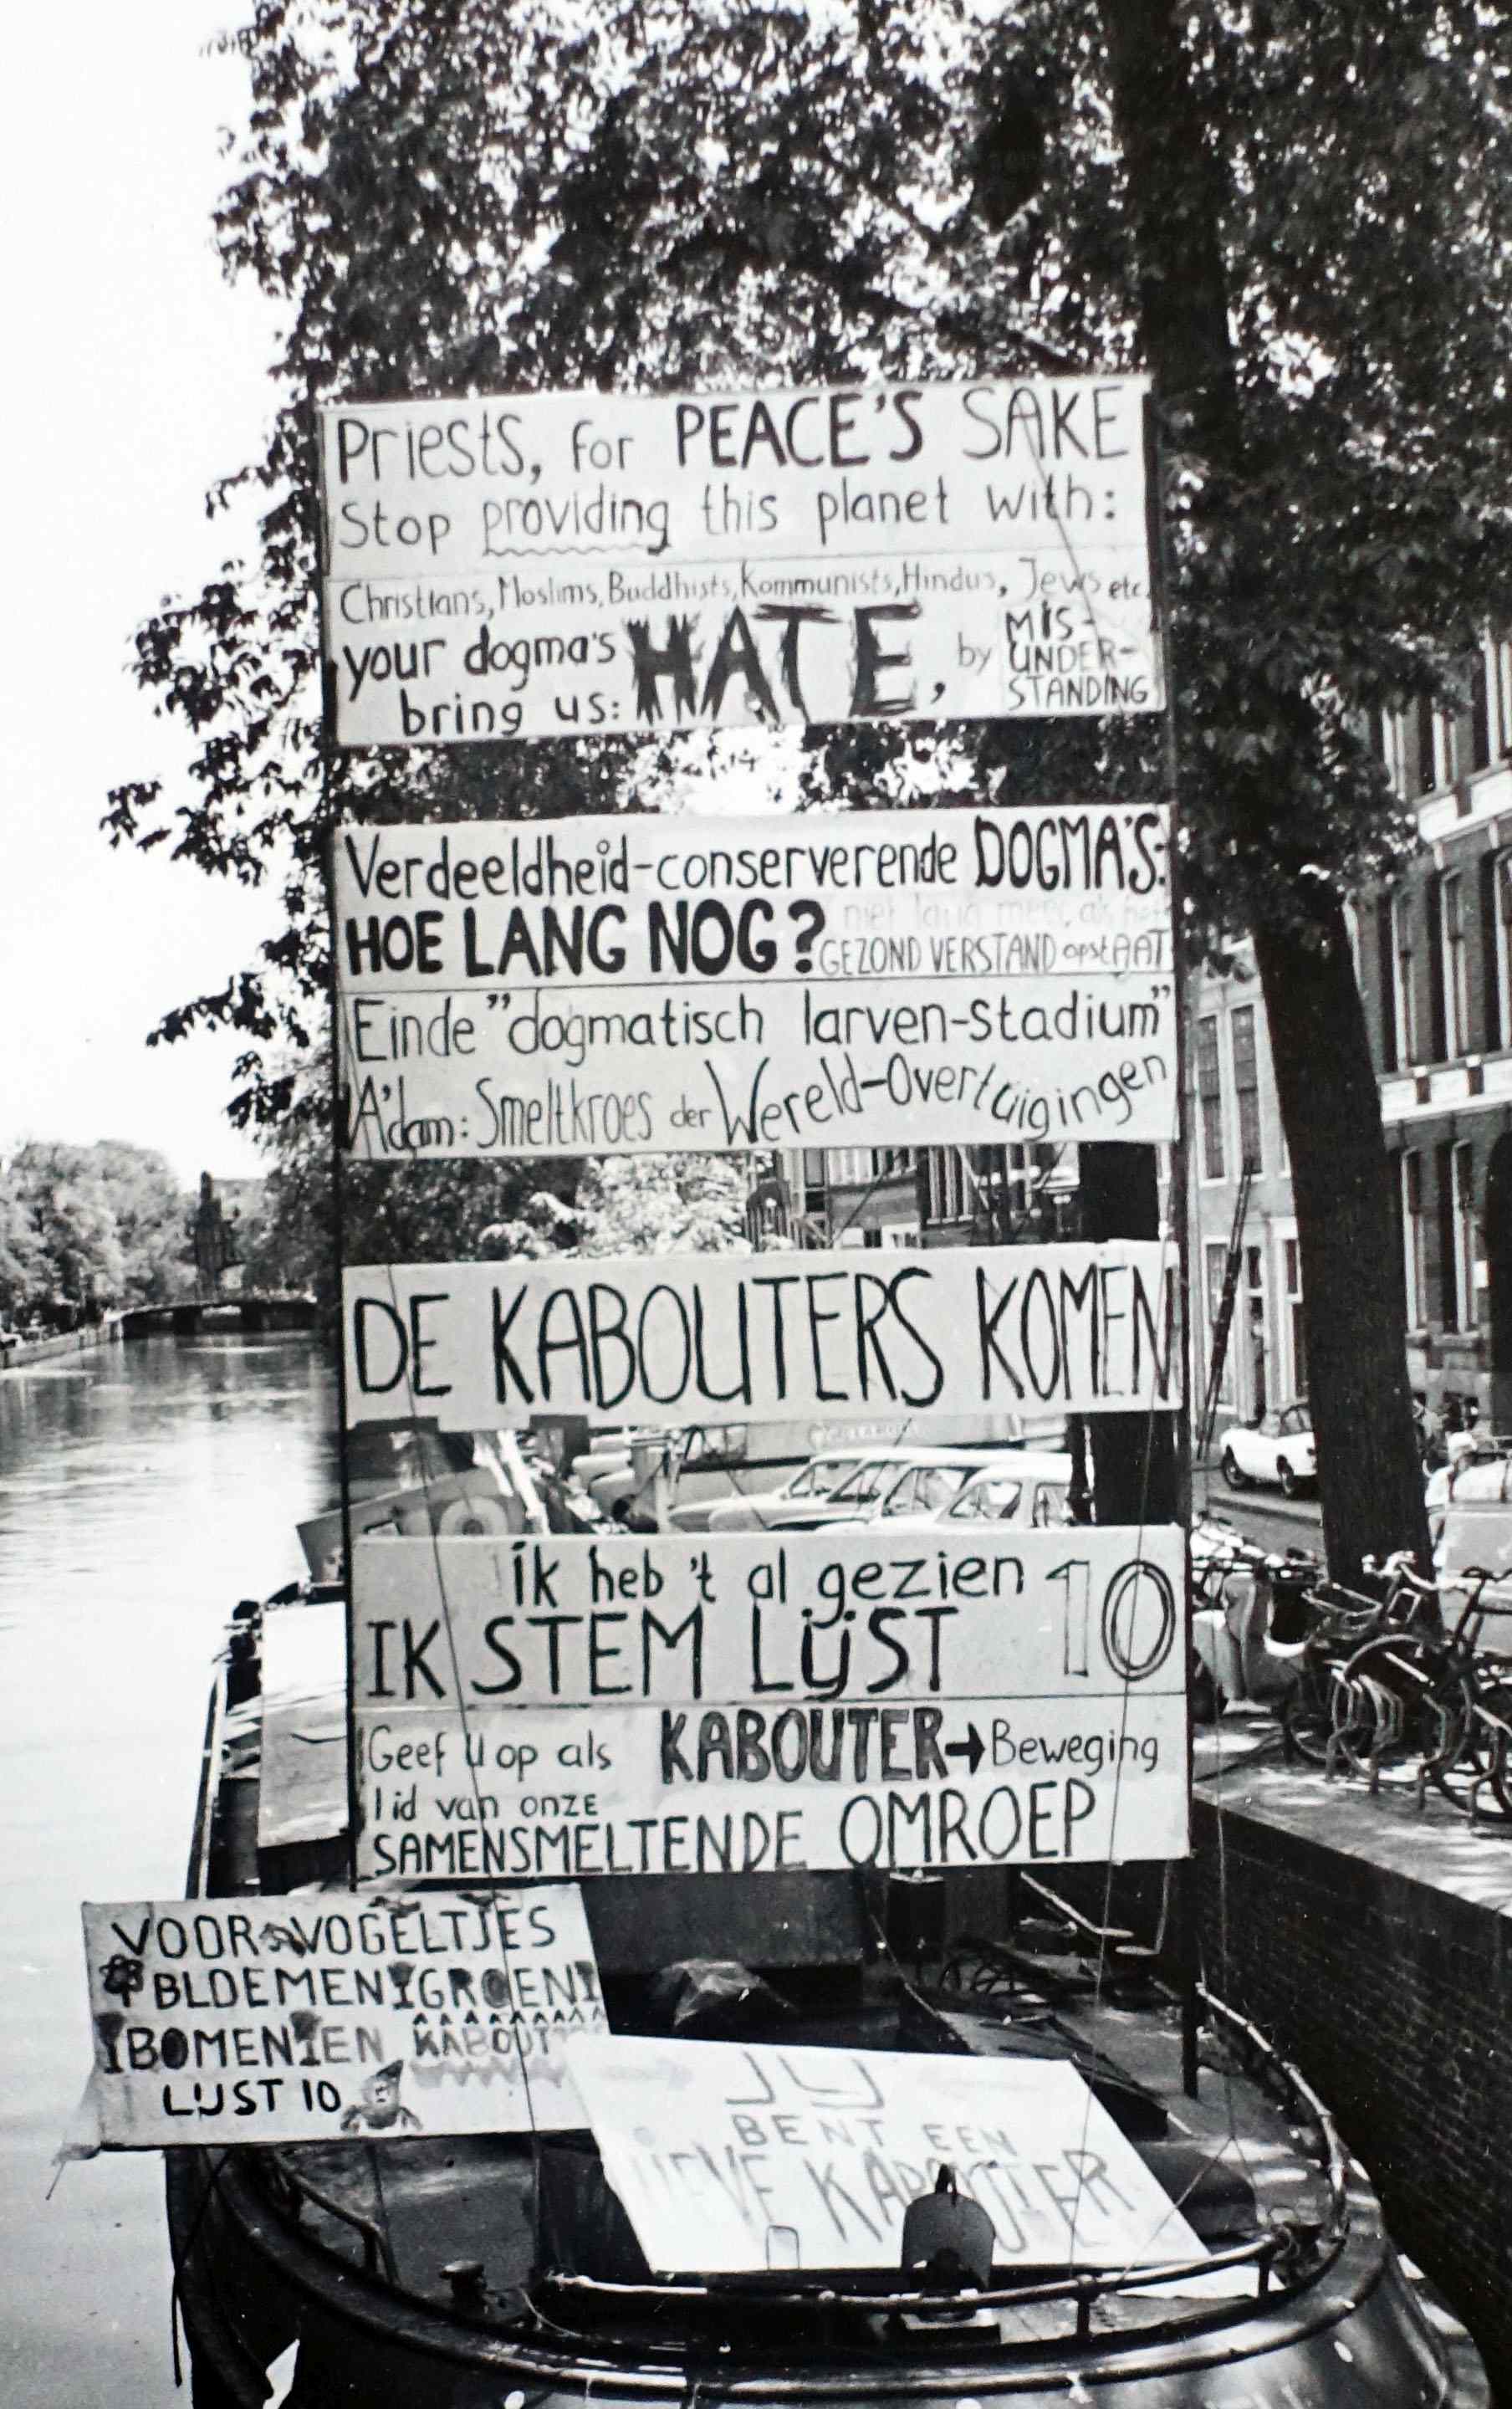 Priests, for PEACE'S SAKE
Stop providing this planet with:
Christians, Moslims, Buddhists, Kommunists, Hindus, Jews etc.
your dogma's HATE, by MIS-
UNDER-
bring us: STANDING
Verdeeldheid-conserverende DOGMA'S:
HOE LANG NOG? niet lang meer, als het
GEZOND VERSTAND opstAAT
Einde "dogmatisch larven-stadium"
A'dam: Smeltkroes der Wereld-Overtuigingen
DE KABOUTERS KOMEN
ik heb 't al gezien 10
IK STEM LIJST
Geef U op als KABOUTER→Beweging
lid van onze
SAMENSMELTENDE OMROEP
VOOR VOGELTJES
BLOEMEN GROEN
BOMEN EN KABOUT
LIJST 10
JIJ
BENT EEN
LIEVE KABOUTER